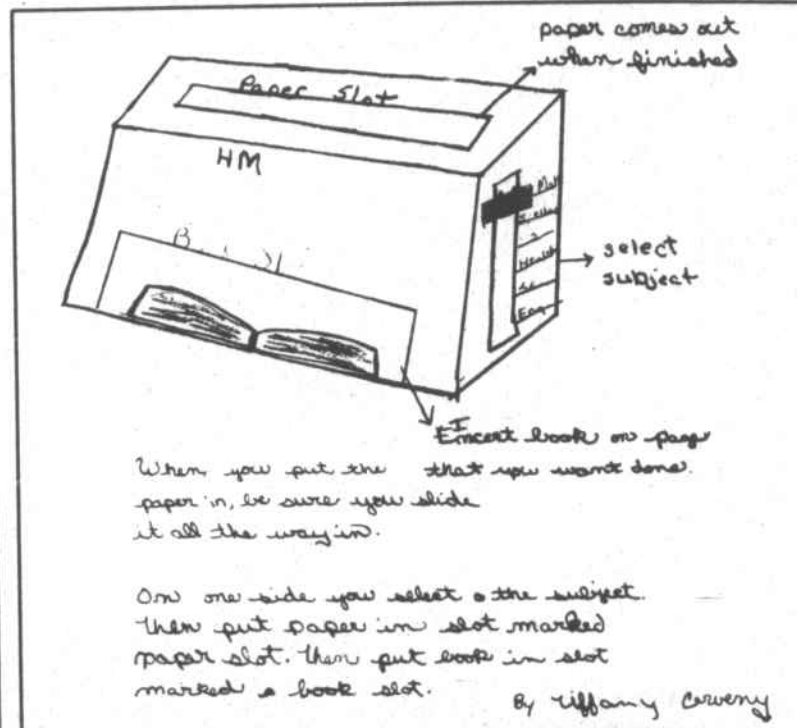 paper comes out
when finished
Paper Slot
HM
Health
select
subject
Incert book on page
that you want done.
When you put the
paper in, be sure you slide
it all the way in.
On one side you select the subject.
Then put paper in slot marked
paper slot. Then put book in slot
marked book slot.
By Tiffany Cerveny